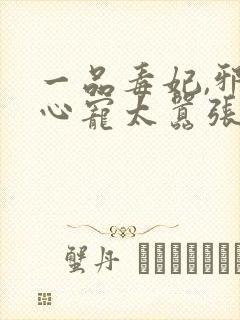 一品毒妃,邪
心寵太囂張
蟹丹